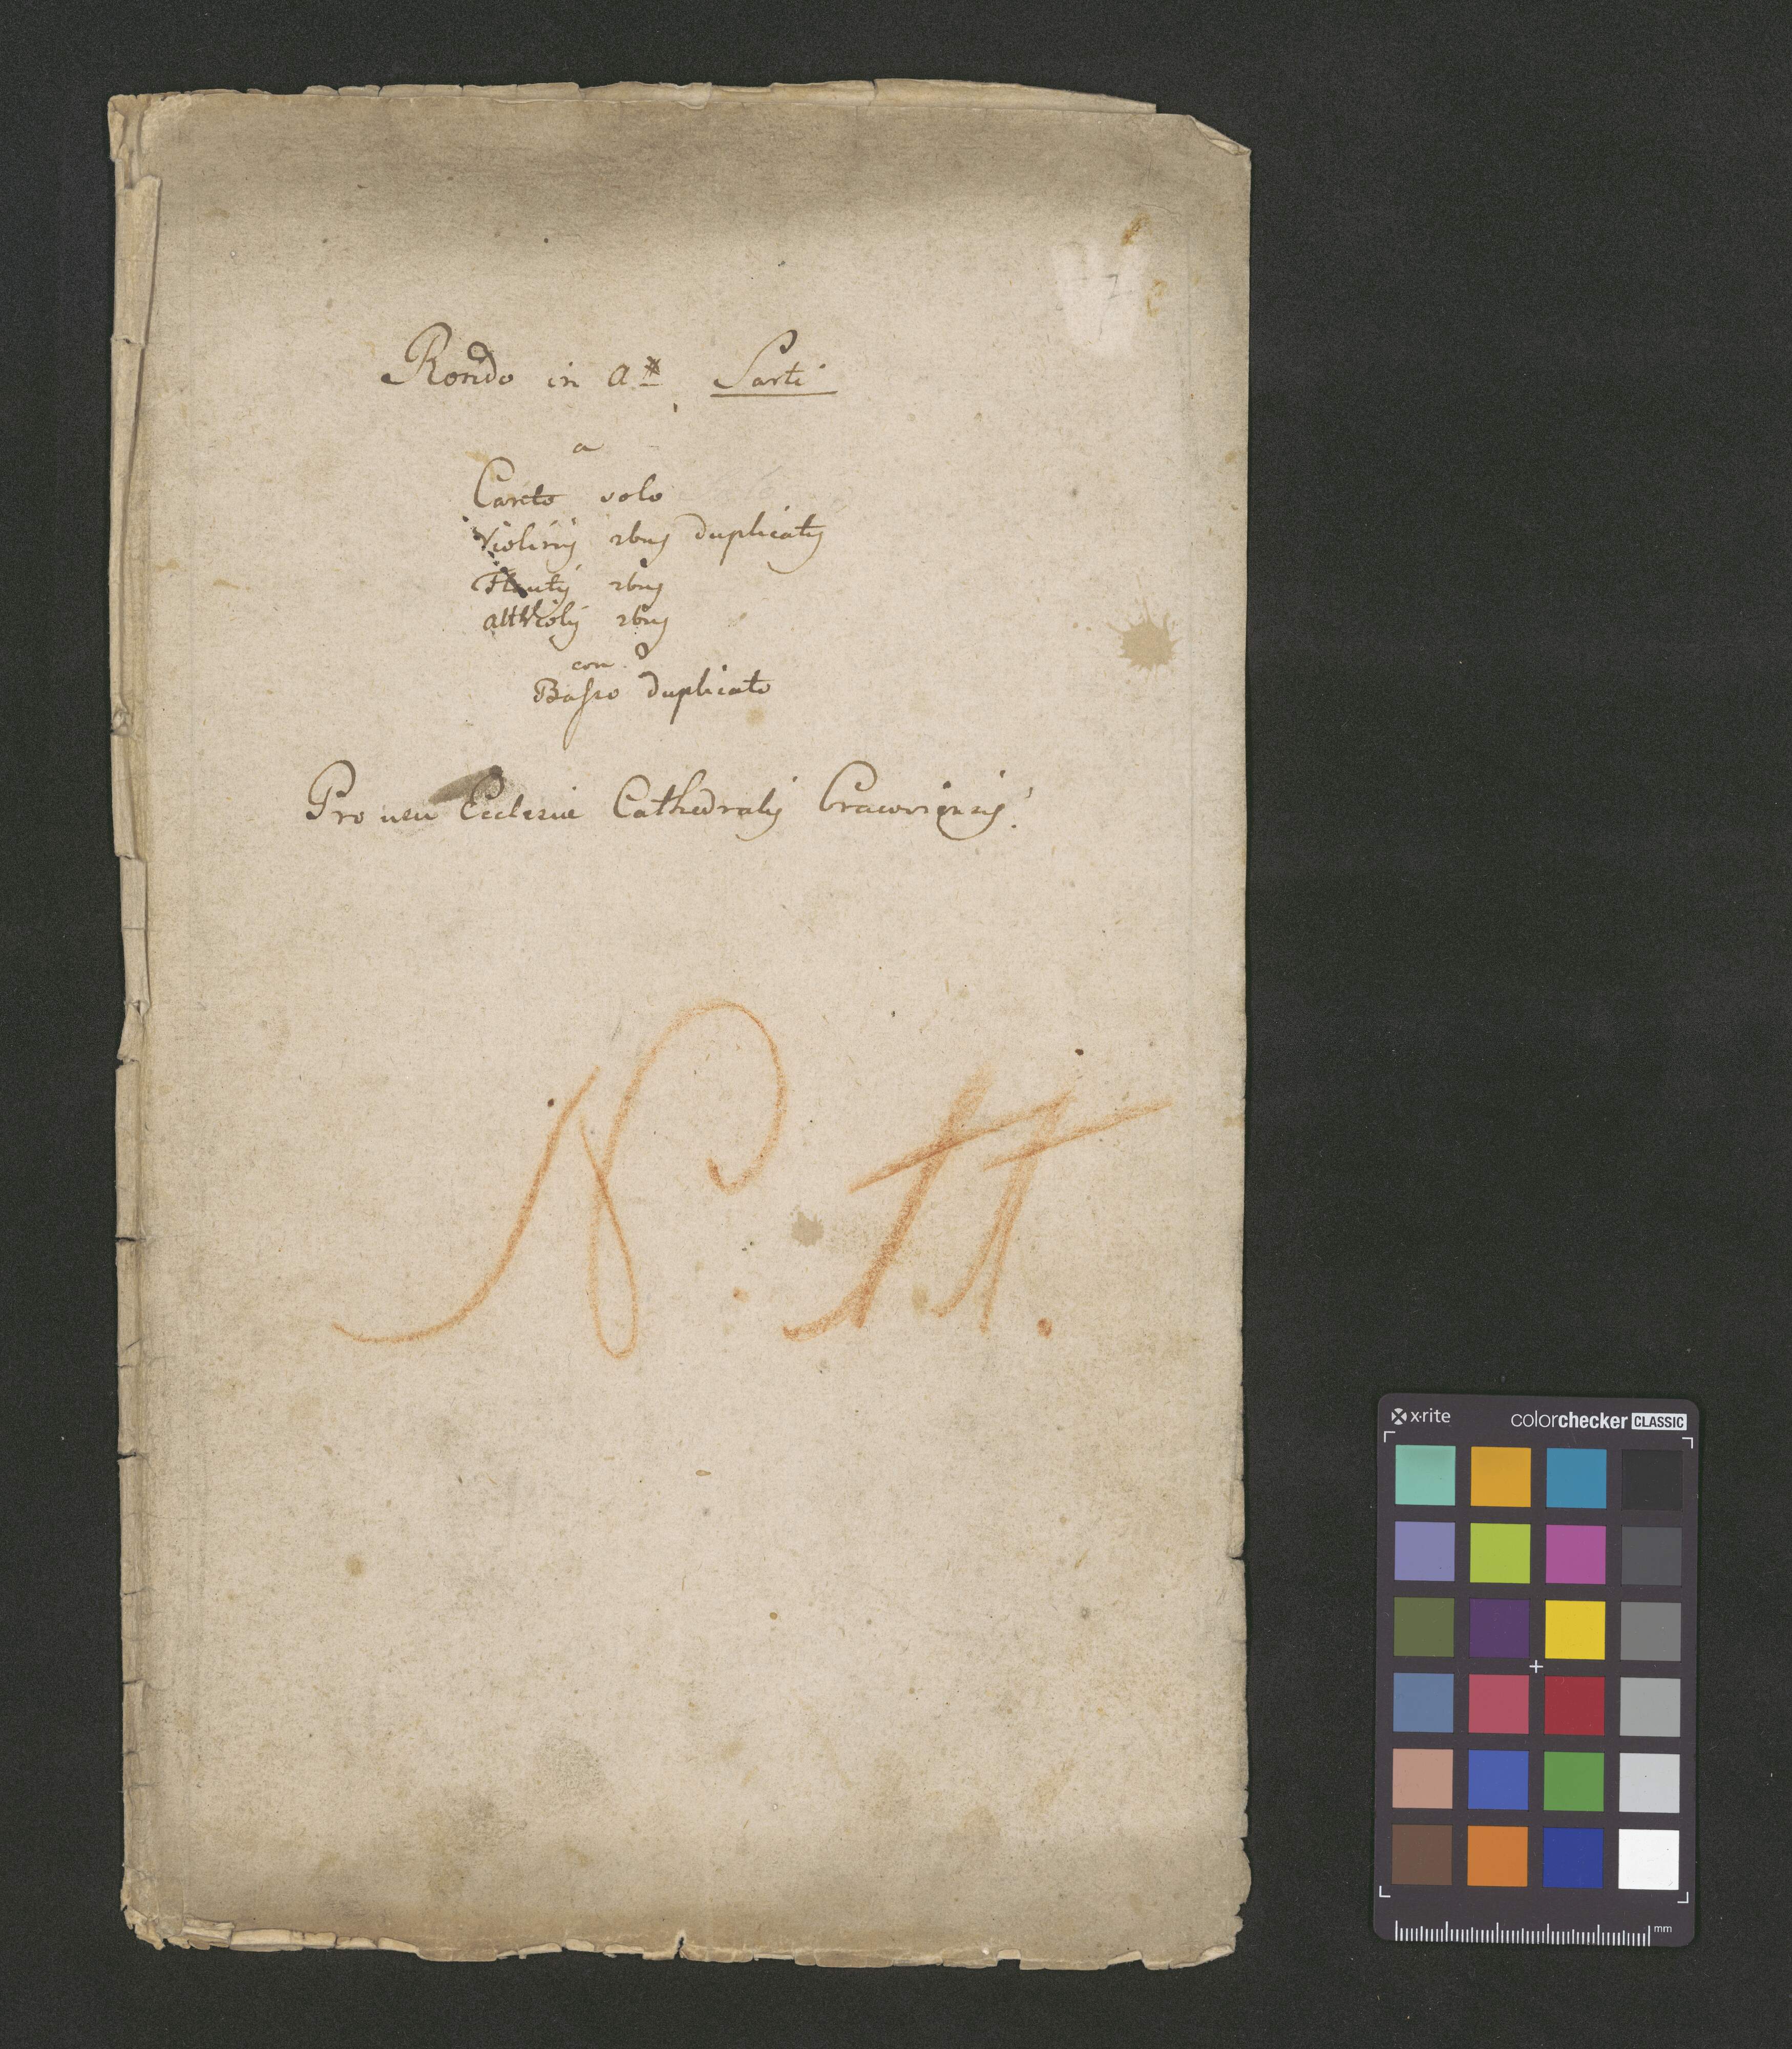 7
Rondo in A# Sarti
a
Canto solo
Violinis 2bus duplicatis
Flautis 2bus
altViolis 2bus
con
Basso duplicato
Pro usu Ecclesiæ Cathedralis Cracoviensis.
N. 11.
x·rite colorchecker CLASSIC
mm